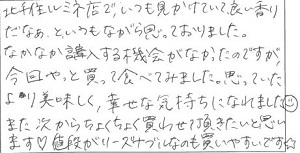 北千住ルミネ店で、いつも見かけていて良い香り
だなぁ、といつもながら思っておりました。
なかなか購入する機会がなかったのですが、
今回やっと買って食べてみました。思っていた
より美味しく、幸せな気持ちになれました☺
また次からちょくちょく買わせて頂きたいと思い
ます♡値段がリーズナブルなのも買いやすいです☆